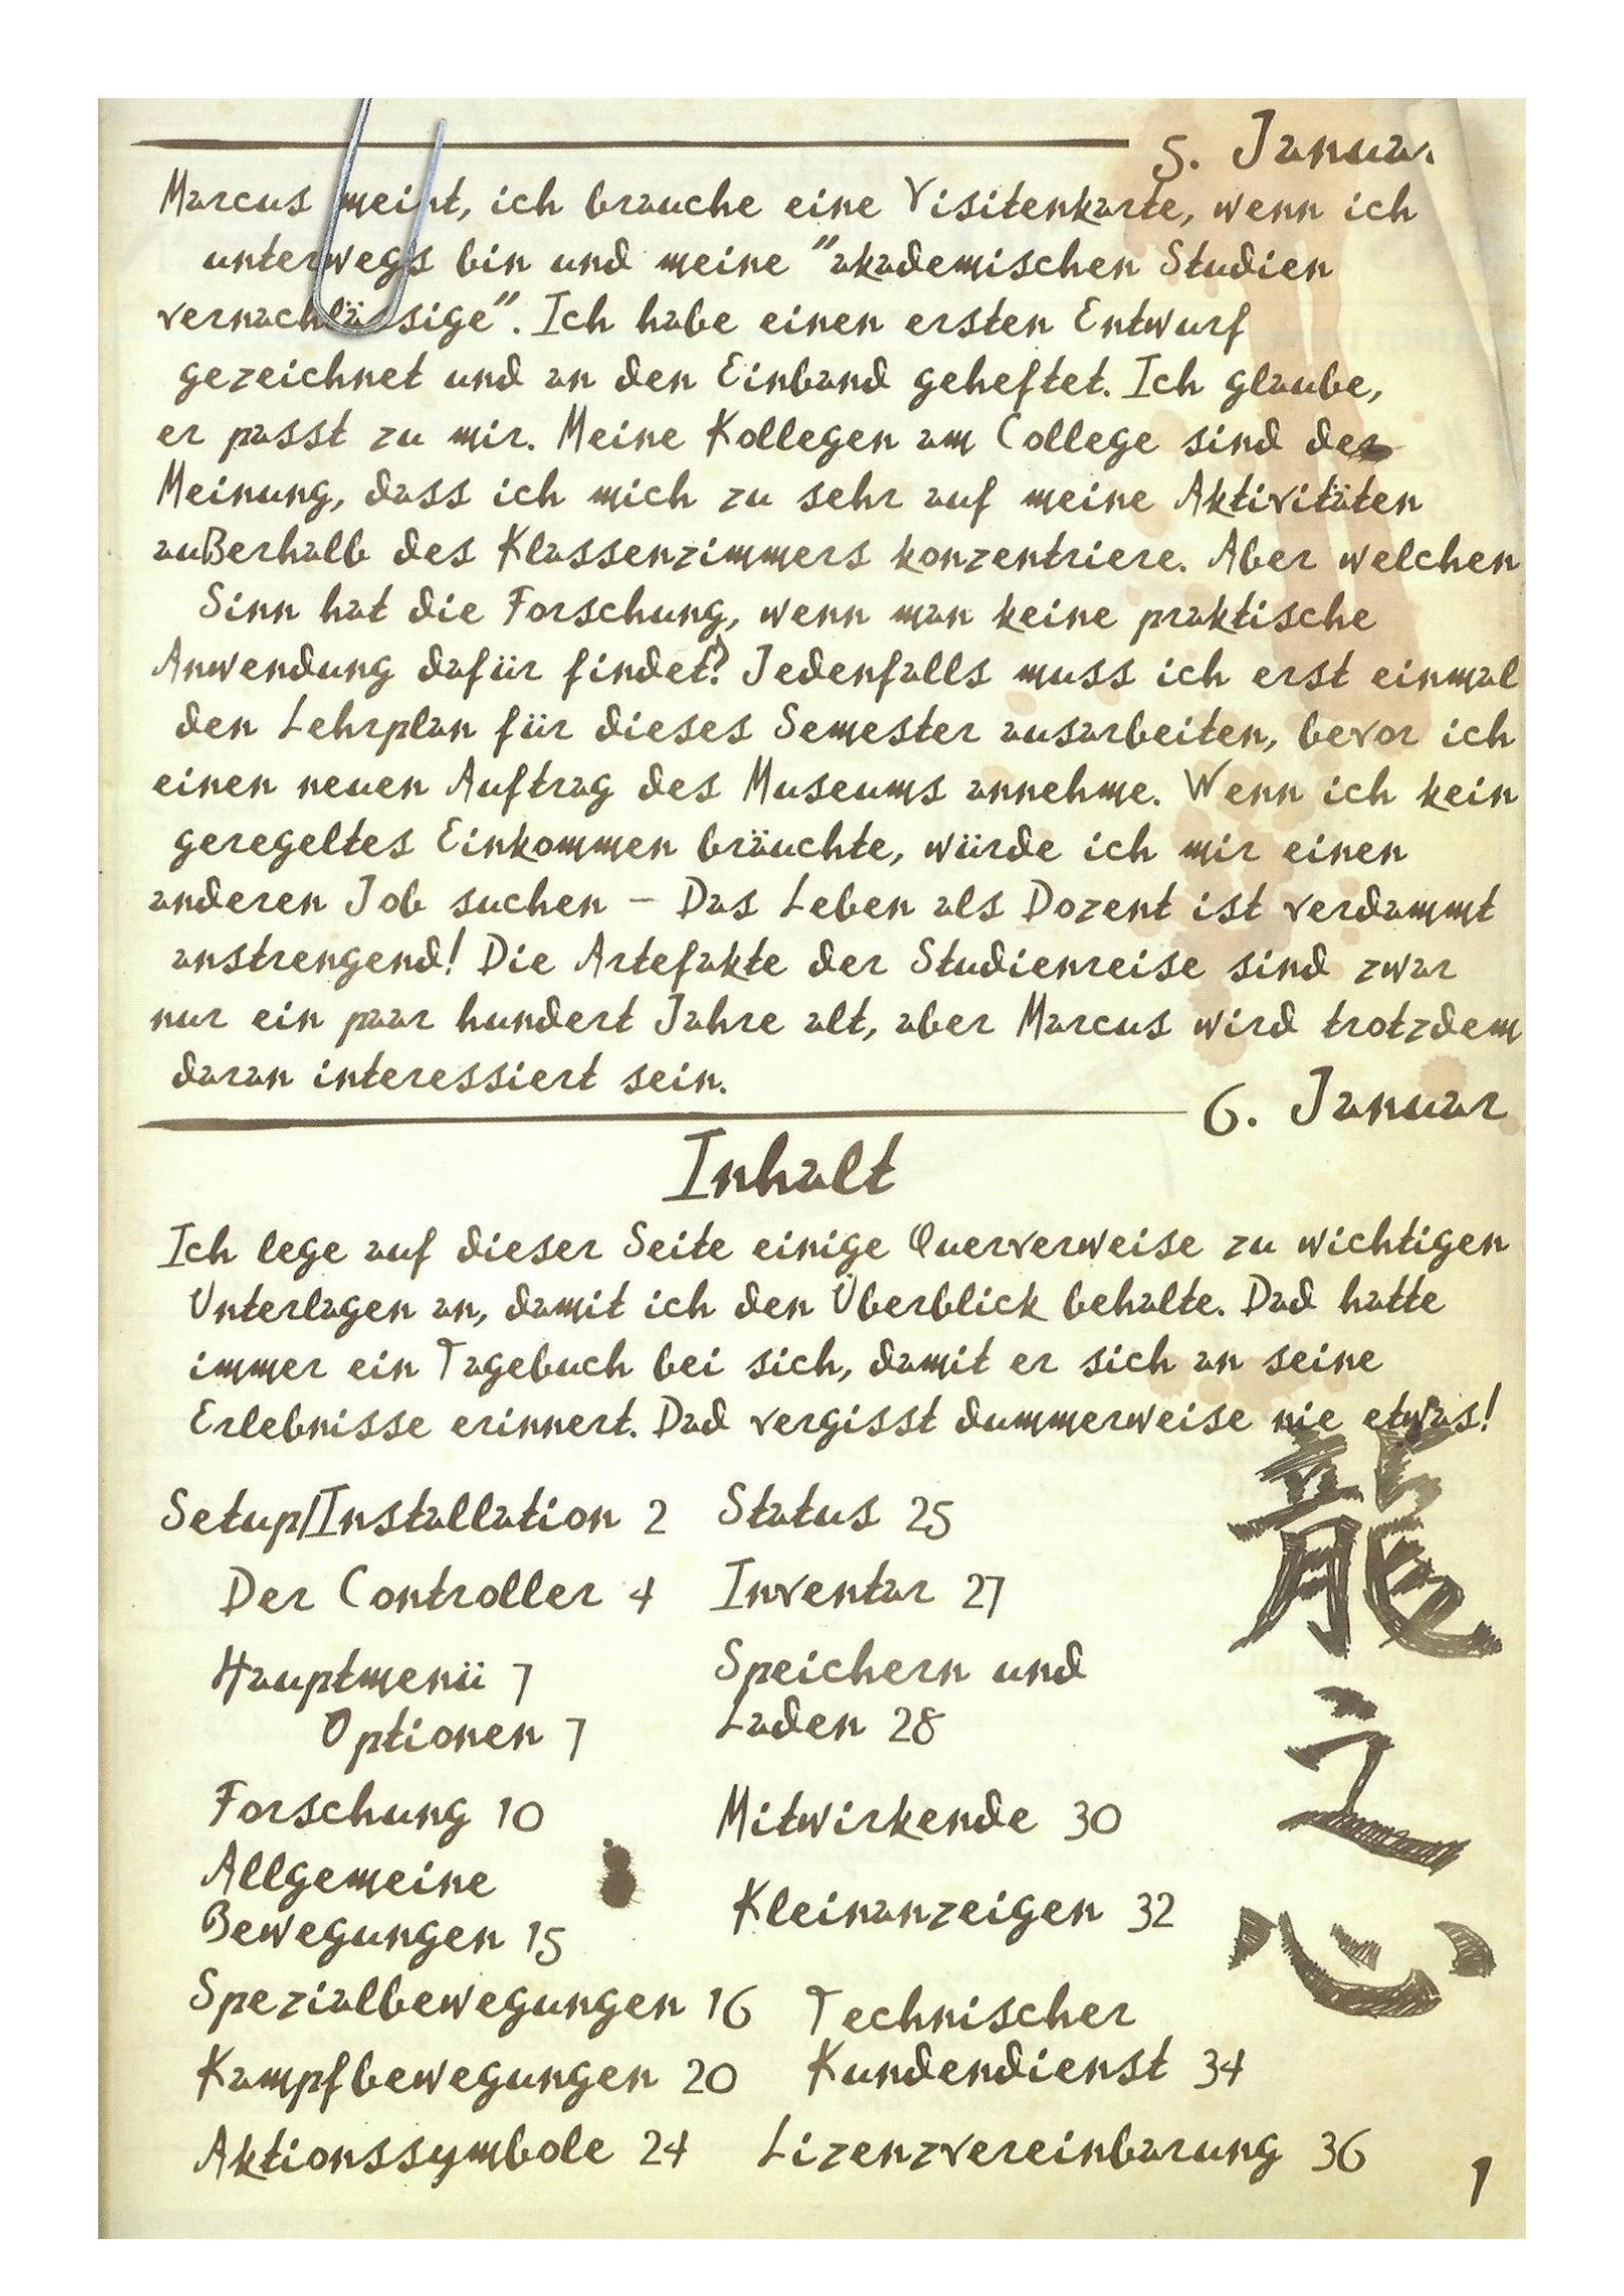 5. Januar
Marcus meint, ich brauche eine Visitenkarte, wenn ich
unterwegs bin und meine "akademischen Studien
vernachlässige". Ich habe einen ersten Entwurf
gezeichnet und an den Einband geheftet. Ich glaube,
er passt zu mir. Meine Kollegen am College sind der
Meinung, dass ich mich zu sehr auf meine Aktivitäten
außerhalb des Klassenzimmers konzentriere. Aber welchen
Sinn hat die Forschung, wenn man keine praktische
Anwendung dafür findet? Jedenfalls muss ich erst einmal
den Lehrplan für dieses Semester ausarbeiten, bevor ich
einen neuen Auftrag des Museums annehme. Wenn ich kein
geregeltes Einkommen bräuchte, würde ich mir einen
anderen Job suchen – Das Leben als Dozent ist verdammt
anstrengend! Die Artefakte der Studienreise sind zwar
nur ein paar hundert Jahre alt, aber Marcus wird trotzdem
daran interessiert sein.
6. Januar
Inhalt
Ich lege auf dieser Seite einige Querverweise zu wichtigen
Unterlagen an, damit ich den Überblick behalte. Dad hatte
immer ein Tagebuch bei sich, damit er sich an seine
Erlebnisse erinnert. Dad vergisst dummerweise nie etwas!
Setup/Installation 2
Der Controller 4
Hauptmenü 7
Optionen 7
Forschung 10
Allgemeine
Bewegungen 15
Spezialbewegungen 16
Kampfbewegungen 20
Aktionssymbole 24
Status 25
Inventar 27
Speichern und
Laden 28
Mitwirkende 30
Kleinanzeigen 32
Technischer
Kundendienst 34
Lizenzvereinbarung 36
龍之心
1